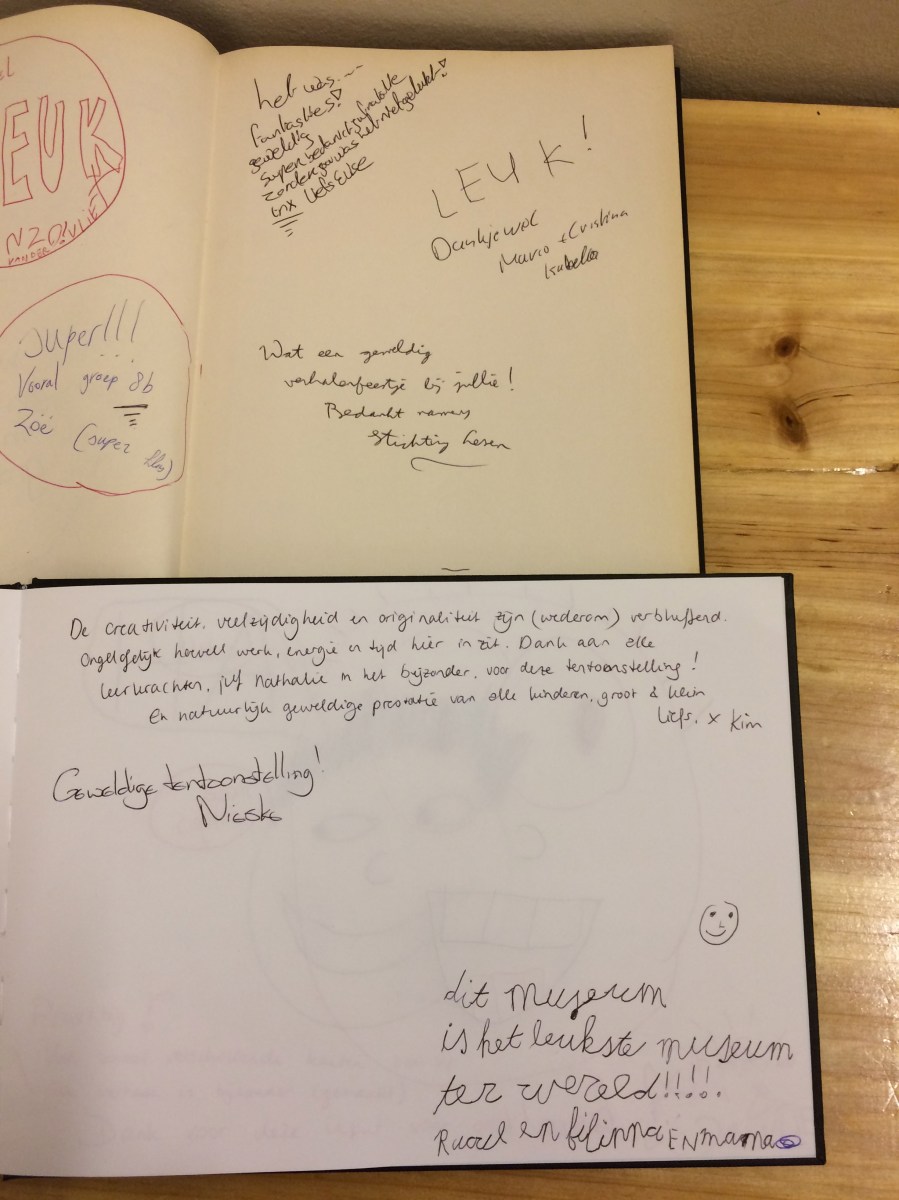 LEUK
VAN DER VLIET
super!!!
Vooral groep 8b
Zoë (super klas)
het was...
fantasties!
geweldig
super bedankt juf nathalie
zonder jou was het niet gelukt!
tnx liefs Elise
LEUK!
Dankjewel
Mario + Cristina
Isabella
Wat een geweldig
verhalenfeestje bij jullie!
Bedankt namens
Stichting Lezen
De creativiteit, veelzijdigheid en originaliteit zijn (wederom) verbluffend.
Ongelofelijk hoeveel werk, energie en tijd hier in zit. Dank aan alle
leerkrachten, juf Nathalie in het bijzonder, voor deze tentoonstelling!
En natuurlijk geweldige prestatie van alle kinderen, groot & klein
Liefs, x Kim
Geweldige tentoonstelling!
Nieske
dit museum
is het leukste museum
ter wereld!!!!!
en filippa EN mama